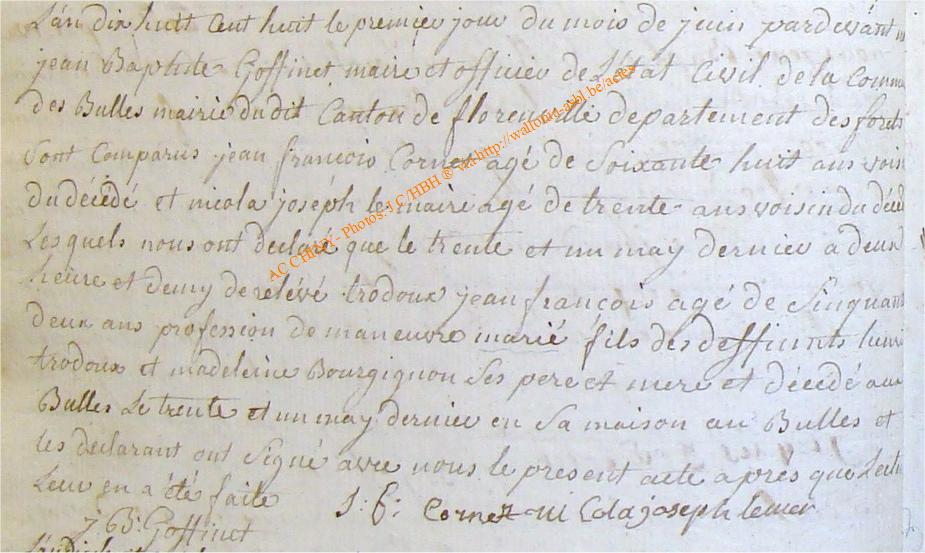 L'an dix huit Cent huit le premier jour du mois de juin pardevant
jean Baptiste Goffinet maire et officier de L'etat Civil de la Comm
des Bulles mairie dudit Canton de florenville departement des forets
Sont Comparus jean francois Cornet agé de Soixante huit ans vois
du décédé et nicola joséph lemaire agé de trente ans voisin du décéd
Lesquels nous ont declaré que le trente et un may dernier a deux
heure et demy de relévé trodoux jean françois agé de Sinquant
deux ans profession de maneuvre marié fils des deffiunts henri
trodoux et madeleine Bourgignon Ses pere et mere et décédé aux
Bulles Le trente et un may dernier en Sa maison au Bulles et
les declarant ont Signé avec nous le present acte apres que Lectu
Leur en a été faite
J: f: Cornet ni Cola joseph lemer
j Bt: Goffinet
AC CHINY - Photos: J C/HBH ® via http://wallonia-asbl.be/actes